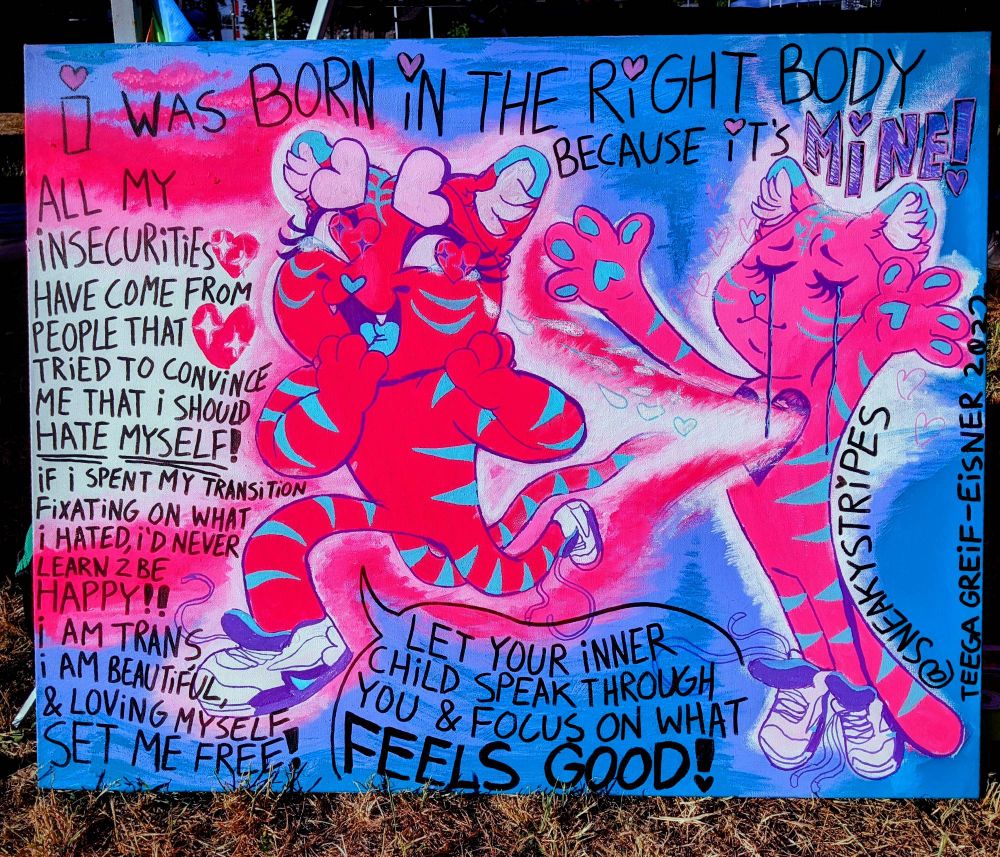 i WAS BORN iN THE RiGHT BODY
BECAUSE iT'S MiNE!
ALL MY
iNSECURiTiES
HAVE COME FROM
PEOPLE THAT
TRiED TO CONViNCE
ME THAT i SHOULD
HATE MYSELF!
iF i SPENT MY TRANSiTiON
FiXATiNG ON WHAT
i HATED, i'D NEVER
LEARN 2 BE
HAPPY!!
i AM TRANS
i AM BEAUTiFUL,
& LOViNG MYSELF
SET ME FREE!
LET YOUR iNNER
CHiLD SPEAK THROUGH
YOU & FOCUS ON WHAT
FEELS GOOD!
@SNEAKYSTRiPES
TEEGA GREiF-EiSNER 2022